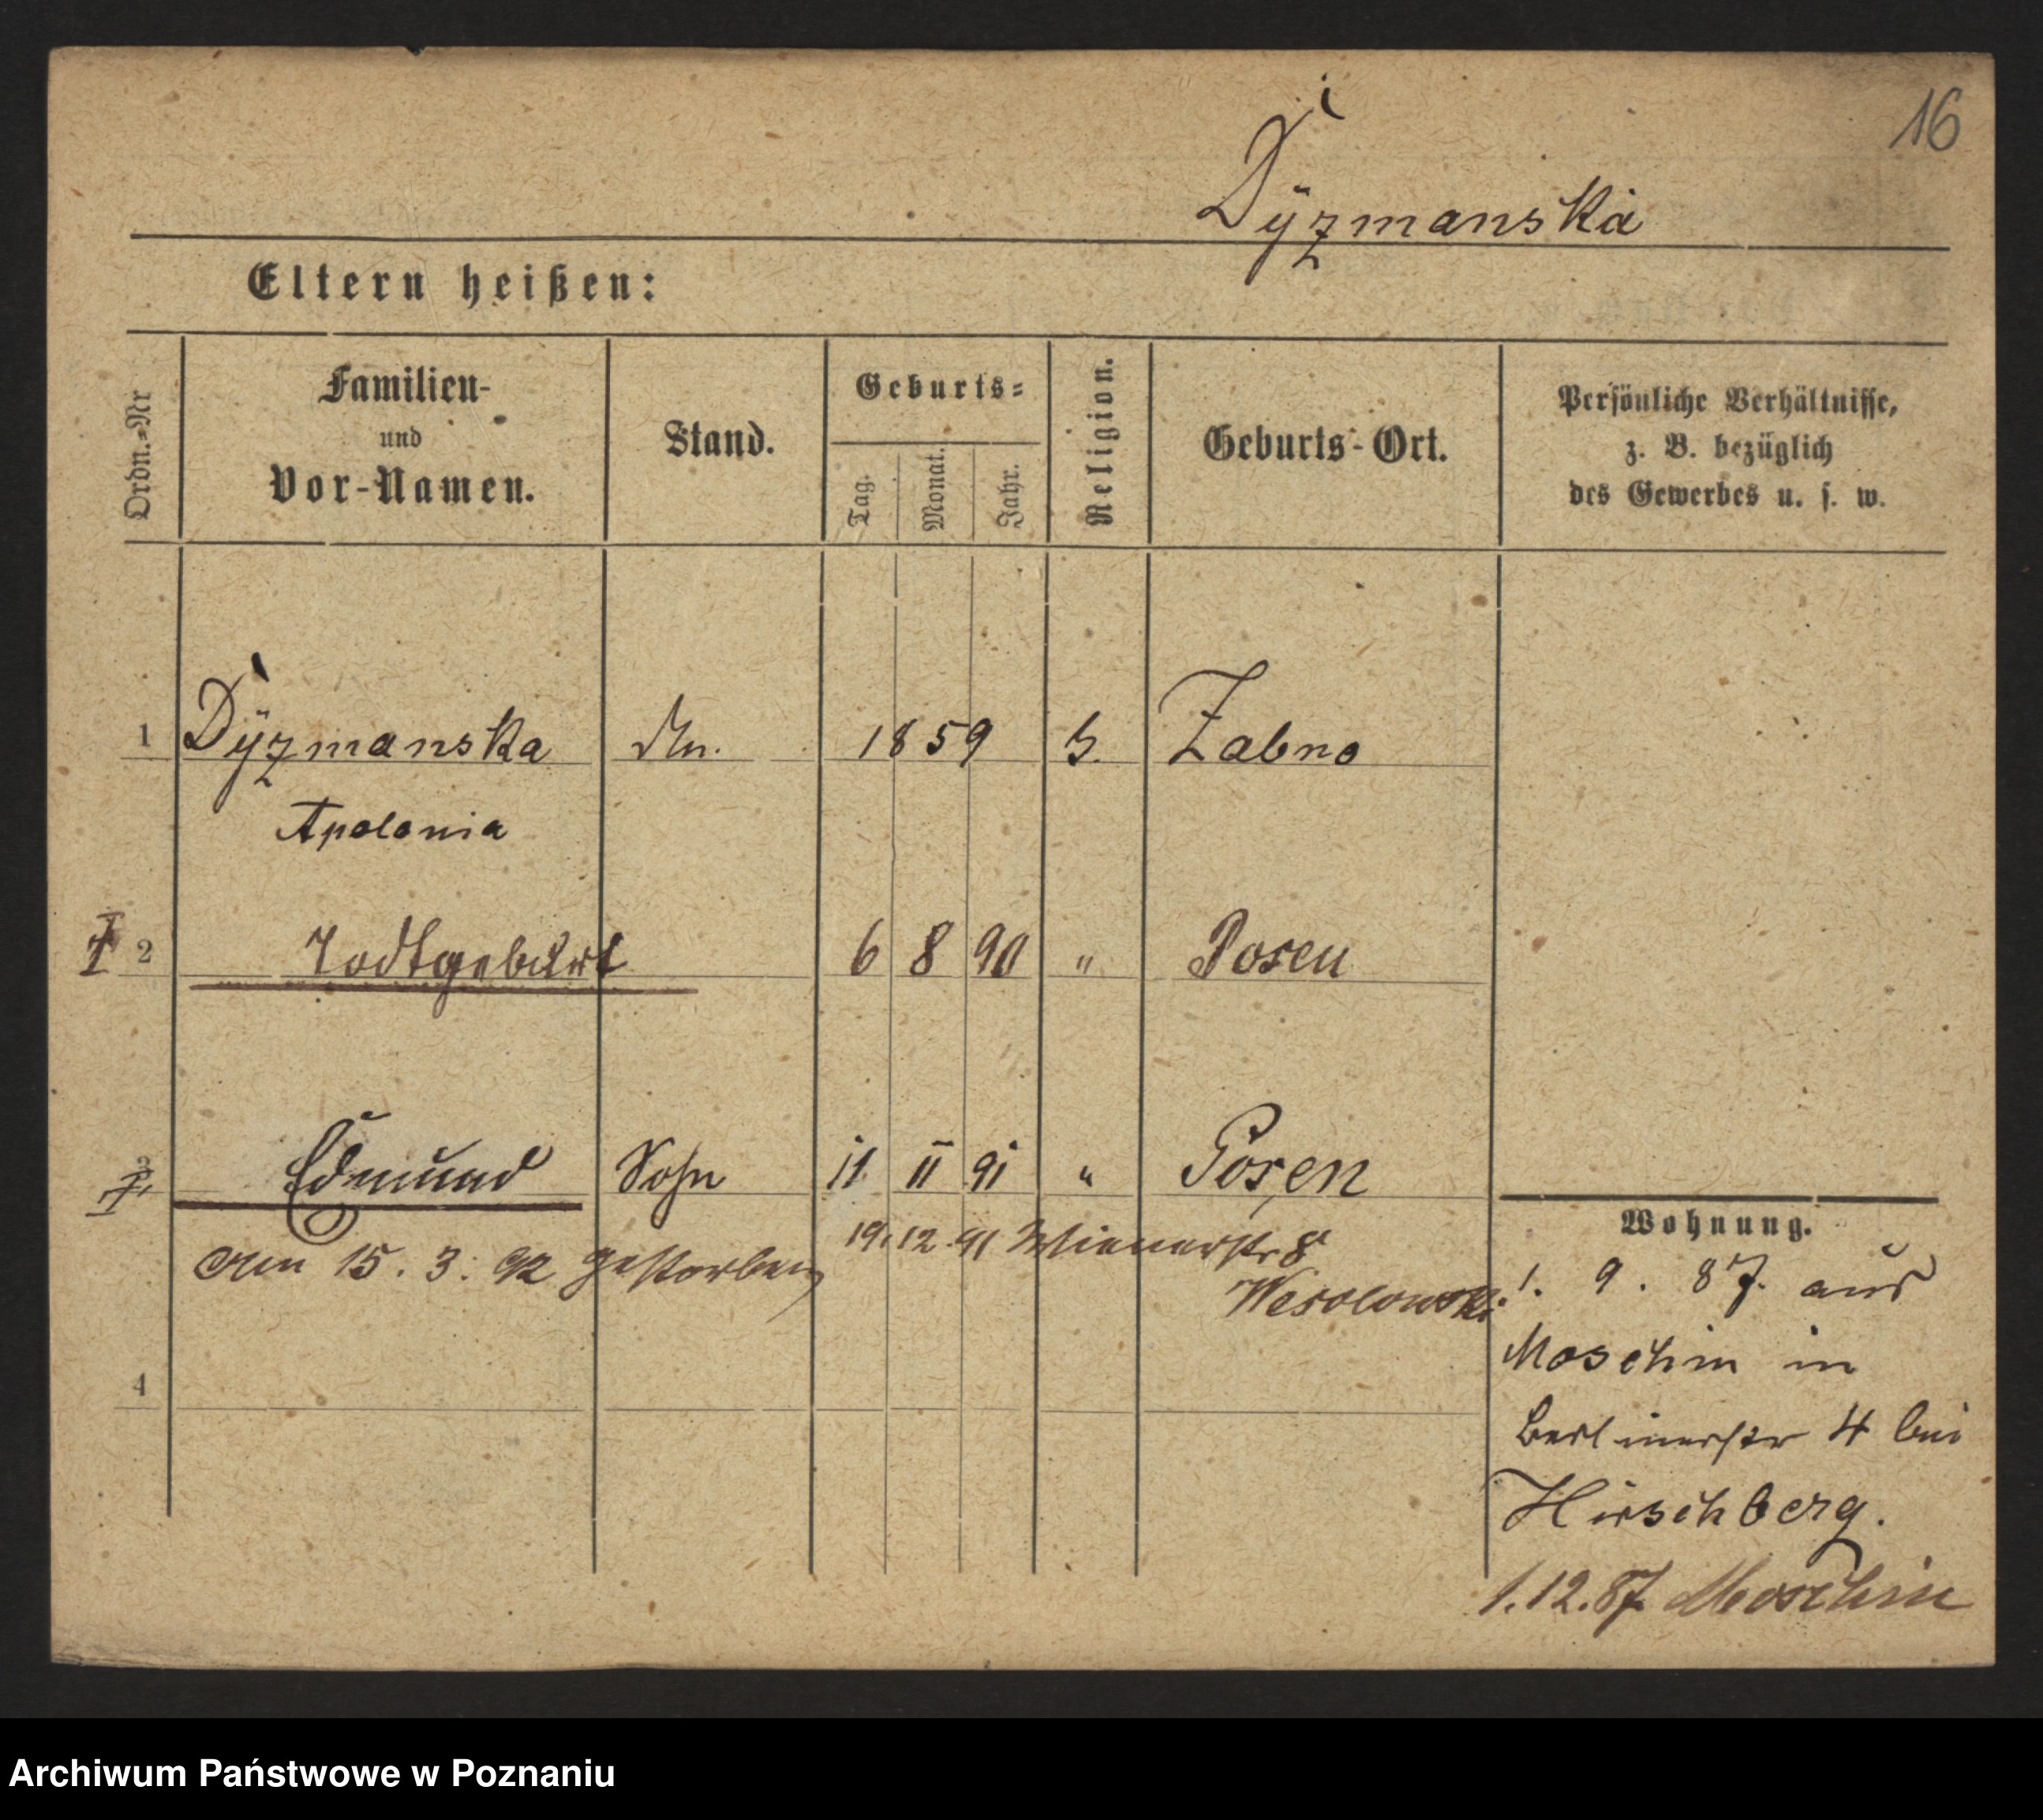 16
Dyzmanska
Eltern heißen:
Ordn.-Nr
Familien-
und
Vor-Namen.
Stand.
Geburts-
Tag.
Monat.
Jahr.
Religion.
Geburts-Ort.
Persönliche Verhältnisse,
z. B. bezüglich
des Gewerbes u. s. w.
1 Dyzmanska 1859 Zabno
Apolonia
2 Todtgeburt 6 8 90 " Posen
3 Edmund Sohn 11 11 91 " Posen
19. 12. 91 Wienerstr 8
am 15. 3. 92 gestorben
Wesolowski
4
Wohnung.
1. 9. 87. aus
Moschin in
Berlinerstr 4 bei
Hirschberg.
1.12.87. Moschin
Archiwum Państwowe w Poznaniu